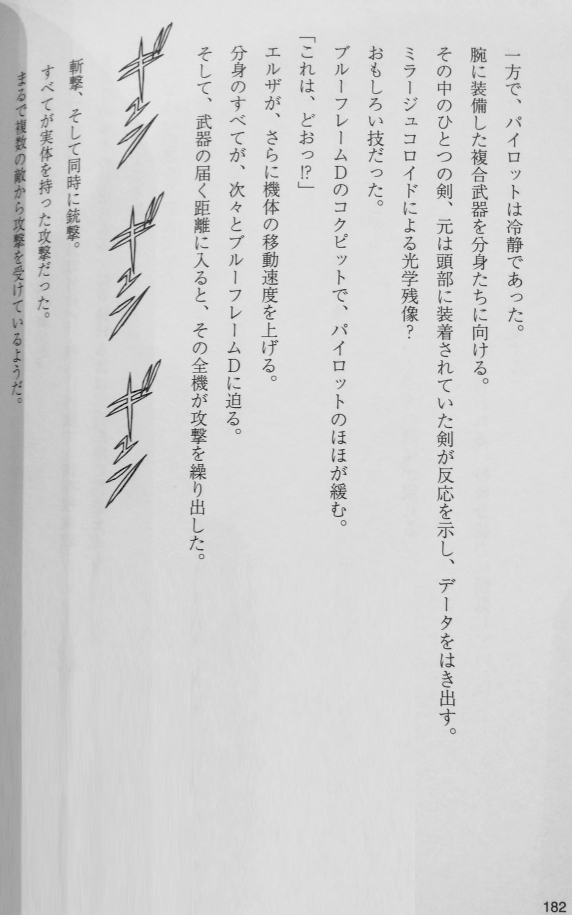 一方で、パイロットは冷静であった。
腕に装備した複合武器を分身たちに向ける。
その中のひとつの剣、元は頭部に装着されていた剣が反応を示し、データをはき出す。
ミラージュコロイドによる光学残像?
おもしろい技だった。
ブルーフレームDのコクピットで、パイロットのほほが緩む。
「これは、どおっ!?」
エルザが、さらに機体の移動速度を上げる。
分身のすべてが、次々とブルーフレームDに迫る。
そして、武器の届く距離に入ると、その全機が攻撃を繰り出した。
ギュン ギュン ギュン
斬撃、そして同時に銃撃。
すべてが実体を持った攻撃だった。
まるで複数の敵から攻撃を受けているようだ。
182